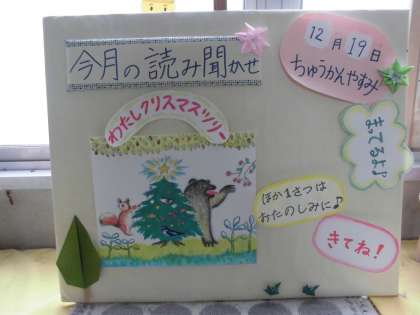 今月の読み聞かせ
12月19日
ちゅうかんやすみ
わたしクリスマスツリー
まってるよ♪
ほか1さつは
おたのしみに♪
きてね!